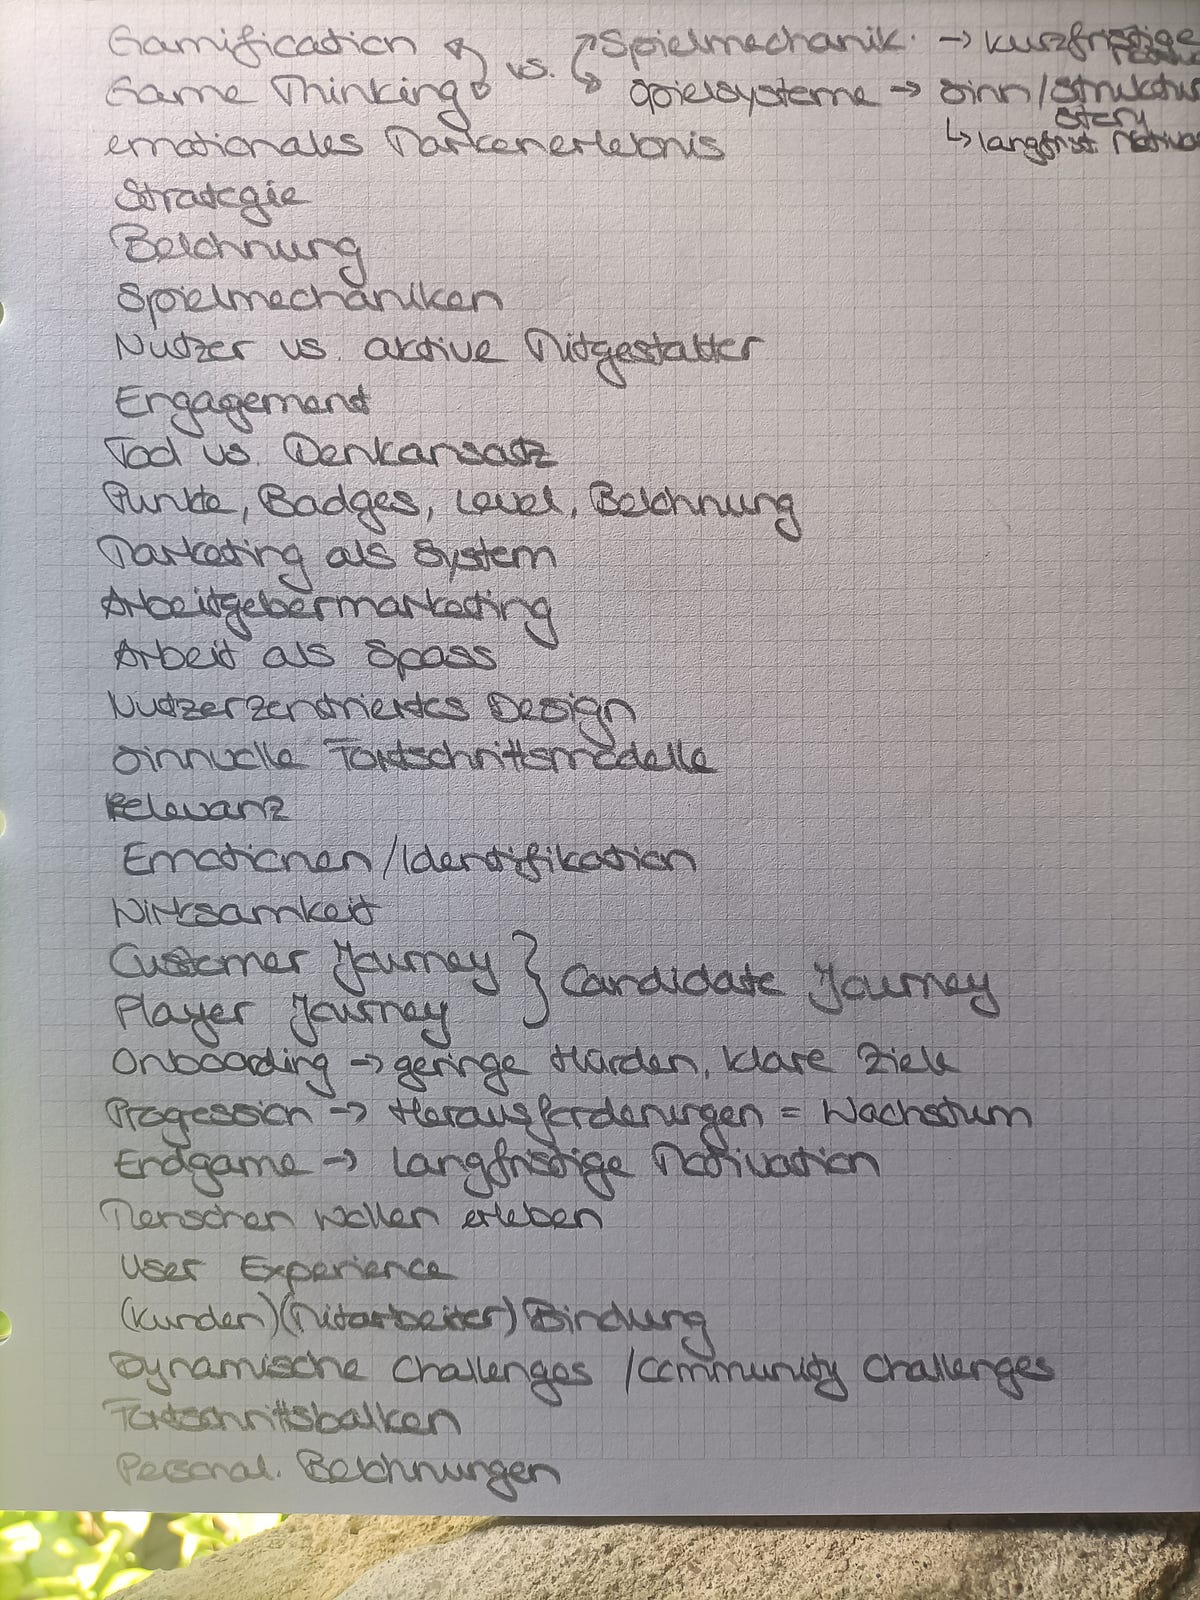 Gamification vs. Spielmechanik → kurzfristige
Game Thinking Spielsysteme → Sinn/Struktur
Story
emotionales Markenerlebnis ↳ langfrist. Motiva
Strategie
Belohnung
Spielmechaniken
Nutzer vs. aktive Mitgestalter
Engagement
Tool vs. Denkansatz
Punkte, Badges, Level, Belohnung
Marketing als System
Arbeitgebermarketing
Arbeit als Spass
Nutzerzentriertes Design
Sinnvolle Fortschrittsmodelle
Relevanz
Emotionen/Identifikation
Wirksamkeit
Customer Journey } Candidate Journey
Player Journey
Onboarding → geringe Hürden, klare Ziele
Progession → Herausforderungen = Wachstum
Endgame → langfristige Motivation
Menschen wollen erleben
User Experience
(Kunden)(Mitarbeiter) Bindung
Dynamische Challenges /Community Challenges
Fortschrittsbalken
Personal. Belohnungen